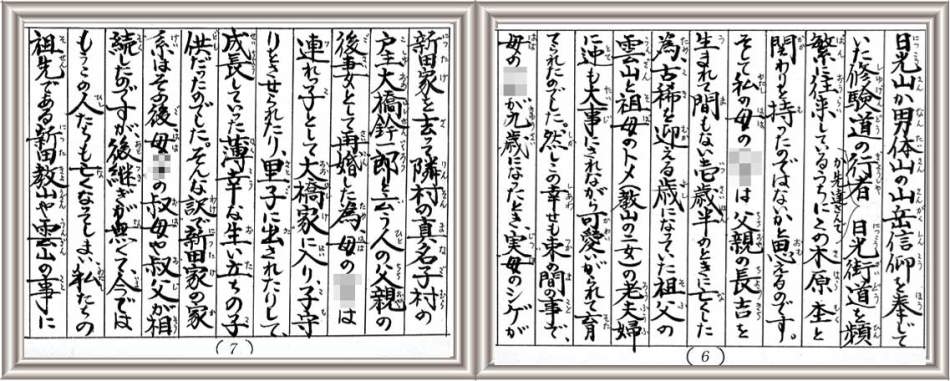 日光山か男体山の山岳信仰を奉じて
いた修験道の行者か先達さんで日光街道を頻
繁に往来しているうちにこの木原杢と
関わりを持ったのではないかと思えるのです。
そして私の母のは父親の長吉を
生まれて間もない壱歳半のときに亡くした
為、古稀を迎える歳になっていた祖父の
雲山と祖母のトメ(教山の二女)の老夫婦
に迚も大事にされながら可愛いがられて育
てられたのでした。然しこの幸せも束の間の事で、
母のが九歳になったとき、実母のシゲが
(6)
新田家を去って隣村の真名子村の
戸主大橋鈴一郎と云う人の父親の
後妻として再婚した為、母のは
連れっ子として大橋家に入り子守
りをさせられたり、里子に出されたりして、
成長していった薄幸な生い立ちの子
供だったのでした。そんな訳で新田家の家
系はその後、母の叔母や叔父が相
続したのですが後継ぎが無くて、今では
もうこの人たちも亡くなってしまい、私たちの
祖先である新田教山や雲山の事に
(7)